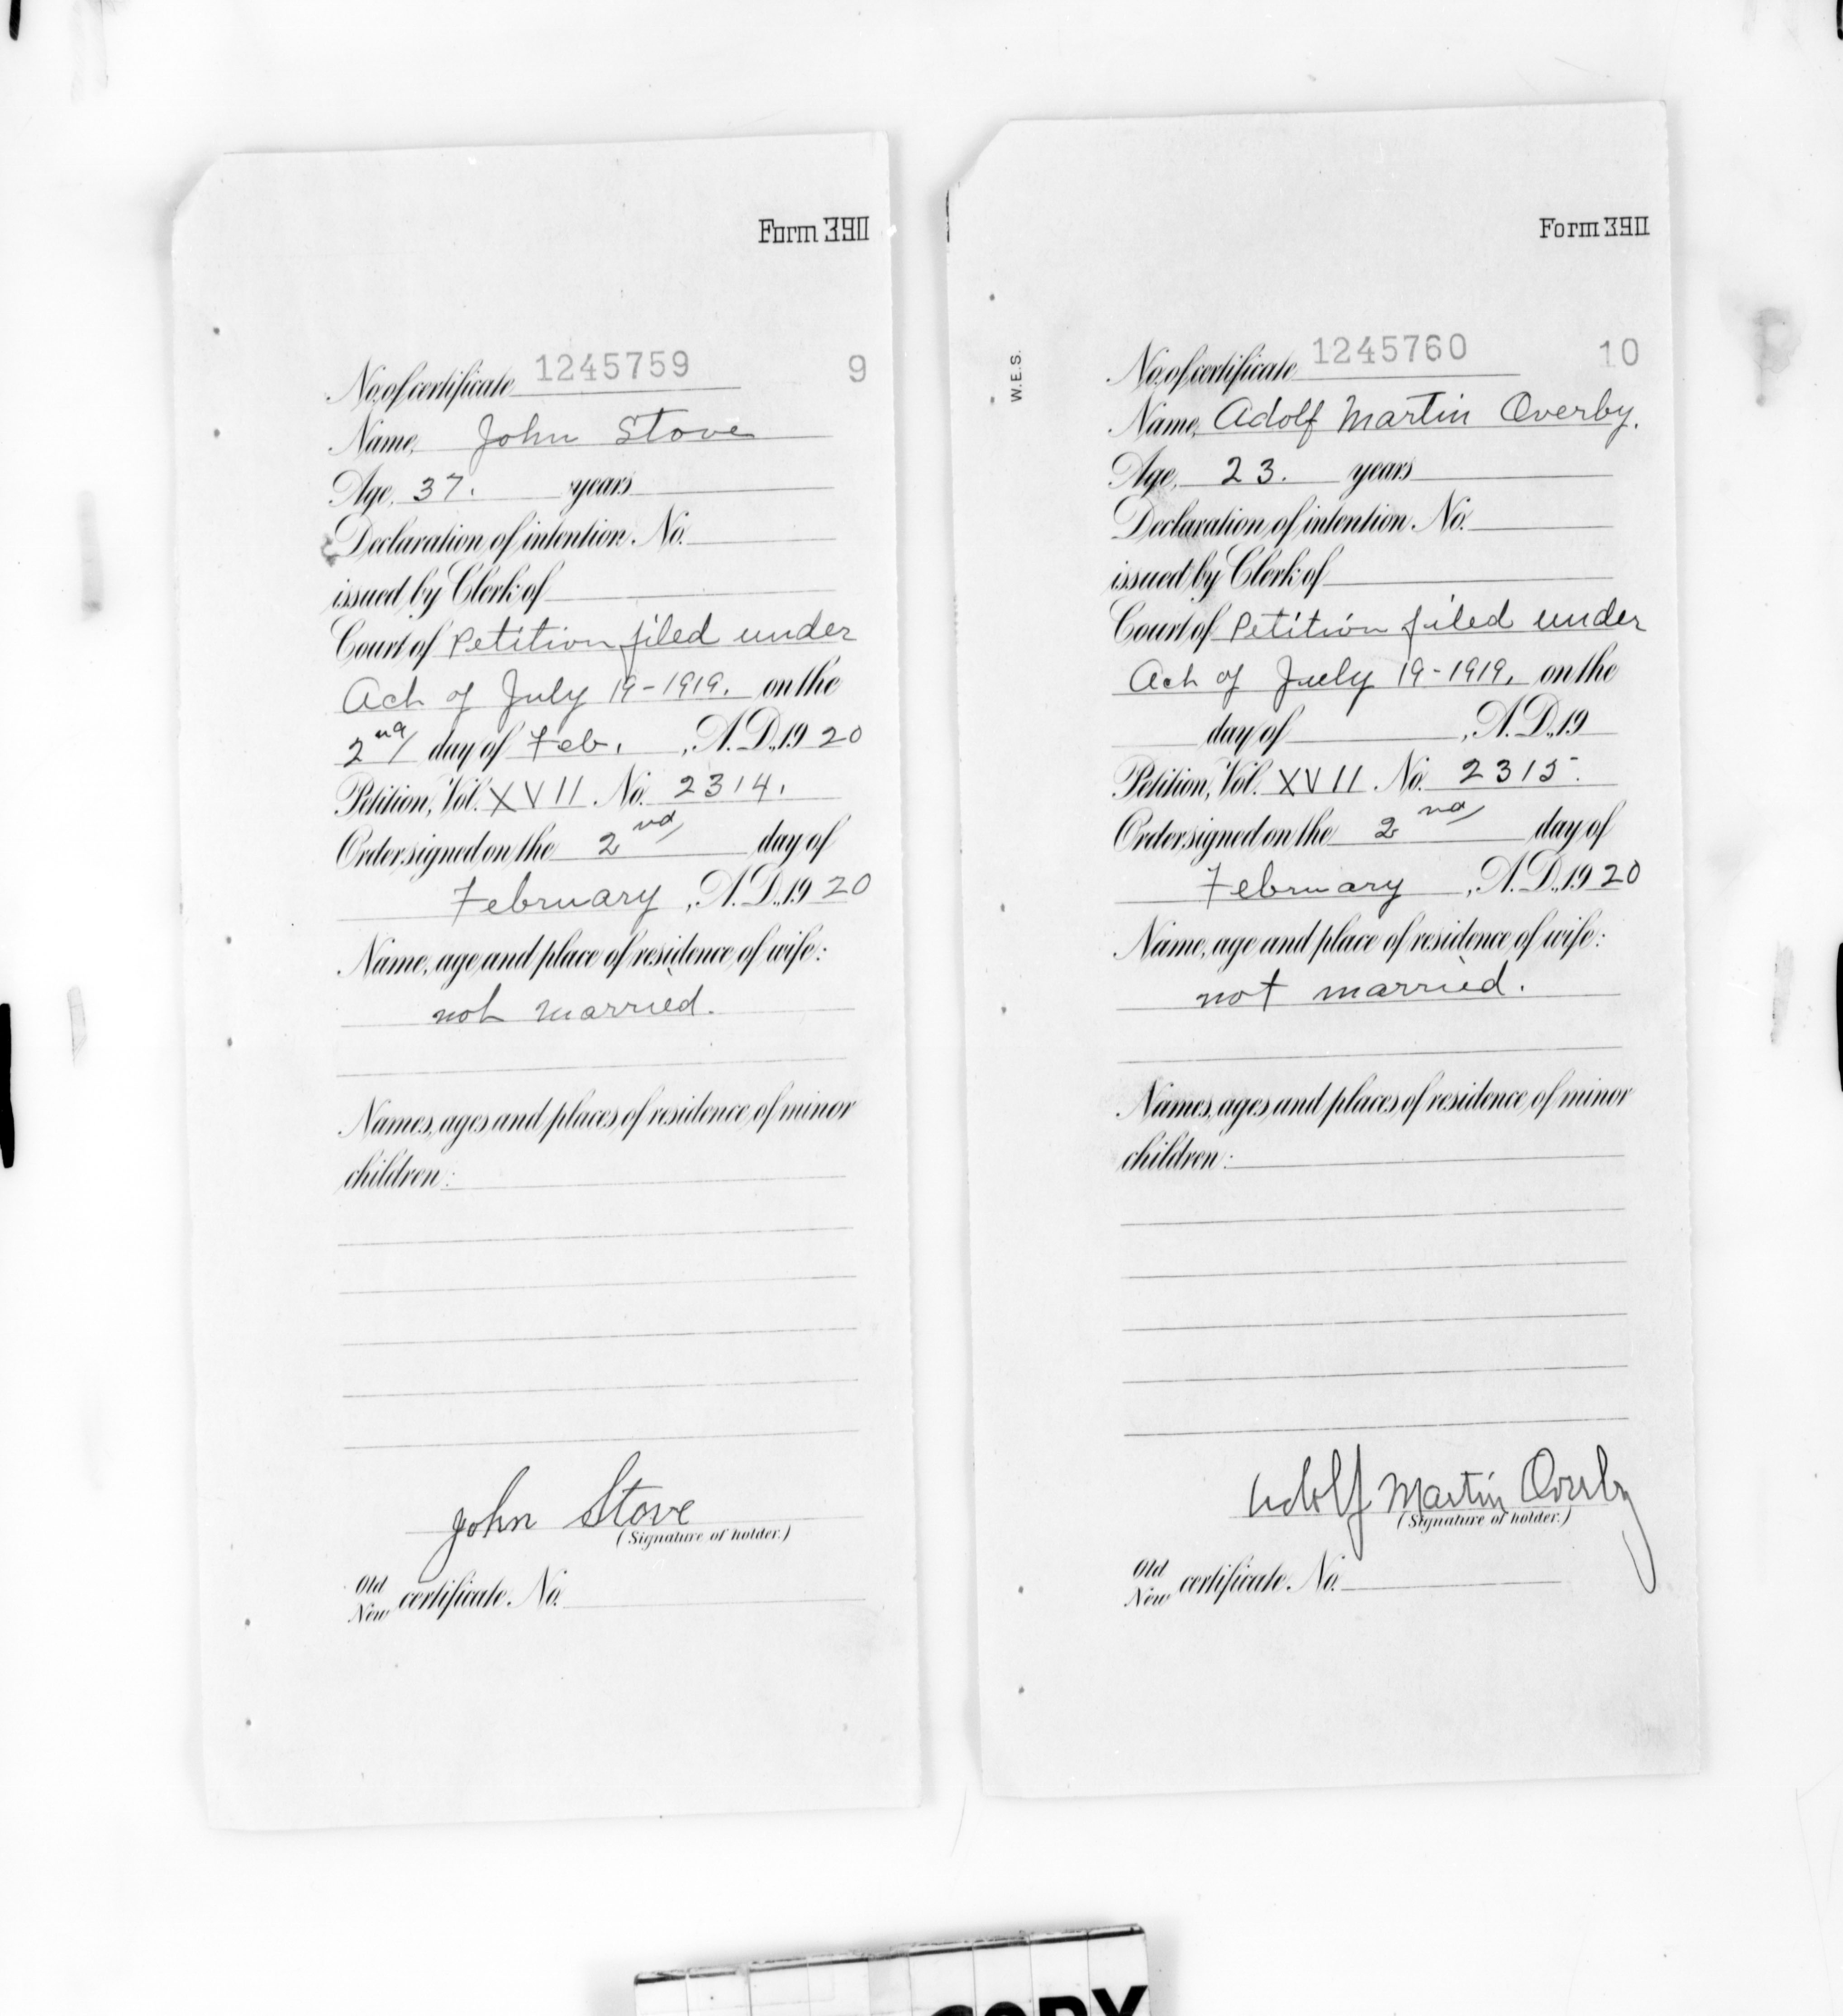 Form 390
No. of certificate 1245759 9
Name, John Stove
Age, 37. years
Declaration of intention. No.
issued by Clerk of
Court of Petition filed under
Act of July 19-1919. on the
2nd day of Feb., A.D., 1920
Petition, Vol. XVII No. 2314.
Order signed on the 2nd day of
February, A.D., 1920
Name, age and place of residence of wife:
not married.
Names, ages and places of residence of minor
children:
John Stove
(Signature of holder.)
Old
New certificate. No.
Form 390
W.E.S.
No. of certificate 1245760 10
Name, Adolf Martin Overby.
Age, 23. years
Declaration of intention. No.
issued by Clerk of
Court of Petition filed under
Act of July 19-1919. on the
day of , A.D., 19
Petition, Vol. XVII No. 2315.
Order signed on the 2nd day of
February, A.D., 1920
Name, age and place of residence of wife:
not married.
Names, ages and places of residence of minor
children:
Adolf Martin Overby
(Signature of holder.)
Old
New certificate. No.
COPY